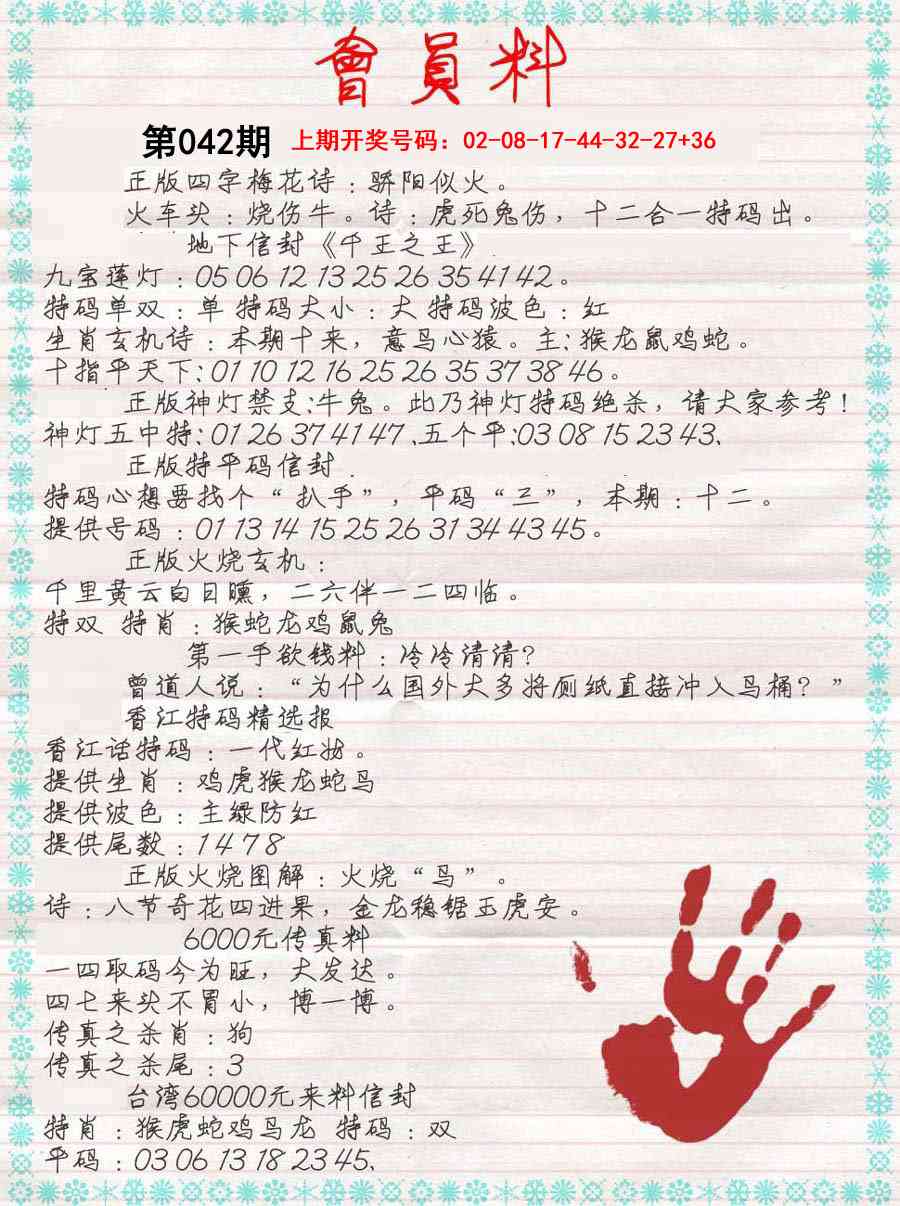 會員料
第042期 上期开奖号码：02-08-17-44-32-27+36
正版四字梅花诗：骄阳似火。
火车头：烧伤牛。诗：虎死兔伤，十二合一特码出。
地下信封《千王之王》
九宝莲灯：05 06 12 13 25 26 35 41 42。
特码单双：单 特码大小：大 特码波色：红
生肖玄机诗：本期十来，意马心猿。主:猴龙鼠鸡蛇。
十指平天下:01 10 12 16 25 26 35 37 38 46。
正版神灯禁支:牛兔。此乃神灯特码绝杀，请大家参考！
神灯五中特:01 26 37 41 47、五个平:03 08 15 23 43、
正版特平码信封
特码心想要找个“扒手”，平码“三”，本期：十二。
提供号码：01 13 14 15 25 26 31 34 43 45。
正版火烧玄机：
千里黄云白日曛，二六伴一二四临。
特双 特肖：猴蛇龙鸡鼠兔
第一手欲钱料：冷冷清清？
曾道人说：“为什么国外大多将厕纸直接冲入马桶？”
香江特码精选报
香江话特码：一代红妝。
提供生肖：鸡虎猴龙蛇马
提供波色：主绿防红
提供尾数：1 4 7 8
正版火烧图解：火烧“马”。
诗：八节奇花四进果，金龙稳锯玉虎安。
6000元传真料
一四取码今为旺，大发达。
四七来头不冒小，博一博。
传真之杀肖：狗
传真之杀尾：3
台湾60000元来料信封
特肖：猴虎蛇鸡马龙 特码：双
平码：03 06 13 18 23 45、